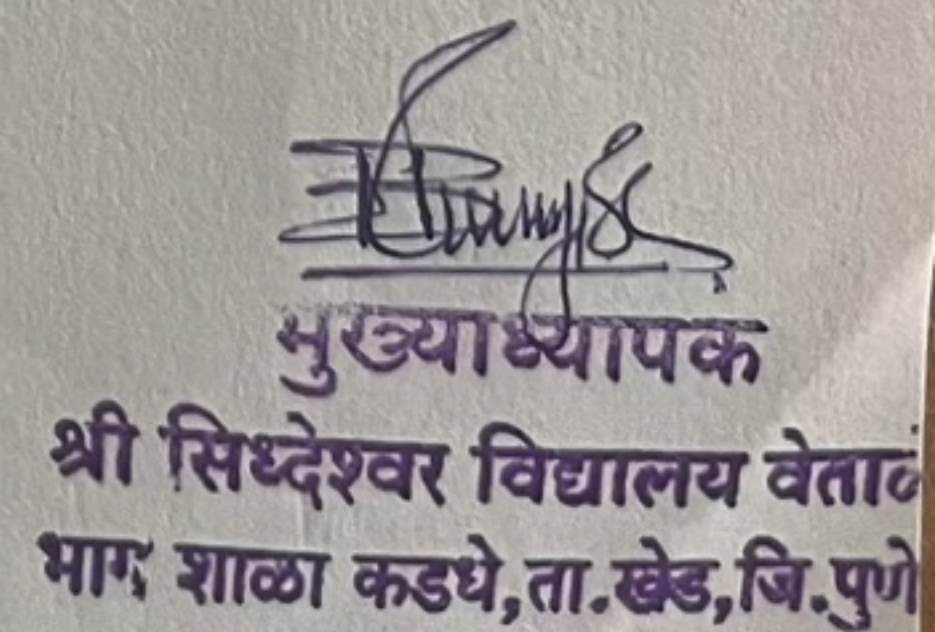 मुख्याध्यापक
श्री सिध्देश्वर विद्यालय
भाग शाळा कडधे,ता.खेड,जि.पुणे